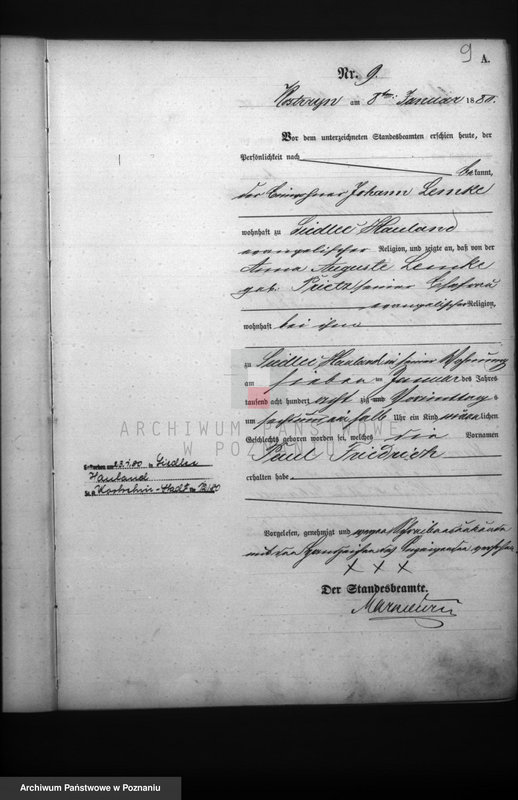 9 A.
Nr. 9.
Kostrzyn am 8ten Januar 1880.
Vor dem unterzeichneten Standesbeamten erschien heute, der
Persönlichkeit nach
be kannt,
der Einwohner Johann Lemke
wohnhaft zu Siedlec Hauland
evangelischer Religion, und zeigte an, daß von der
Anna Auguste Lemke
geb. Prietz seiner Ehefrau
evangelischer Religion,
wohnhaft bei ihm
zu Siedlec Hauland in seiner Wohnung
am sieben ten Januar des Jahres
tausend acht hundert acht zig und Vormittags
um sechs einhalb Uhr ein Kind männ lichen
Geschlechts geboren worden sei, welches die Vornamen
Paul Friedrich
erhalten habe.
Gestorben am 23.7.80 in Siedlec
Hauland
St. A. Kostschin-Stadt
Vorgelesen, genehmigt und wegen Schreibensunkunde
mit den Handzeichen des Anzeigenden versehen
X X X
Der Standesbeamte.
ARCHIWUM PAŃSTWOWE
W POZNANIU
Archiwum Państwowe w Poznaniu